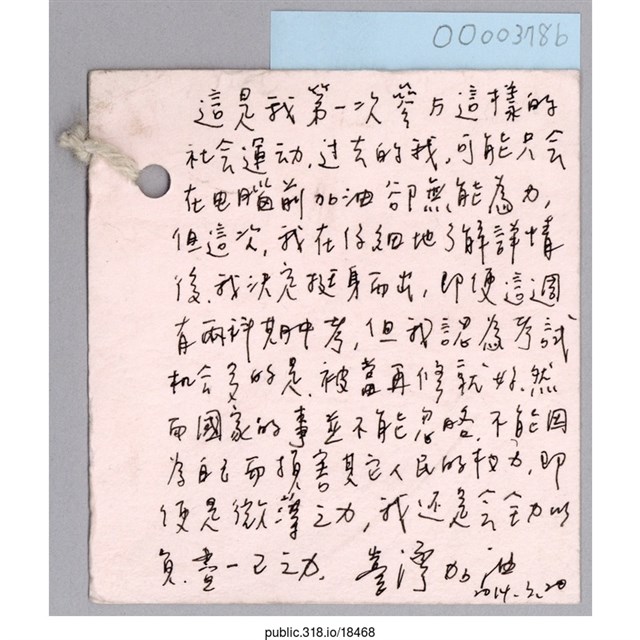 00003786
這是我第一次參与這樣的
社会運动,过去的我,可能只会
在电腦前加油卻無能為力,
但這次,我在仔細地了解詳情
後,我決定挺身而出,即便這週
有兩科期中考,但我認為考試
机会多的是,被當再修就好.然
而國家的事並不能忽略,不能因
為自己而損害其它人民的权力,即
便是微薄之力,我还是会全力以
負.盡一己之力. 臺灣加油
2014.3.20
public.318.io/18468